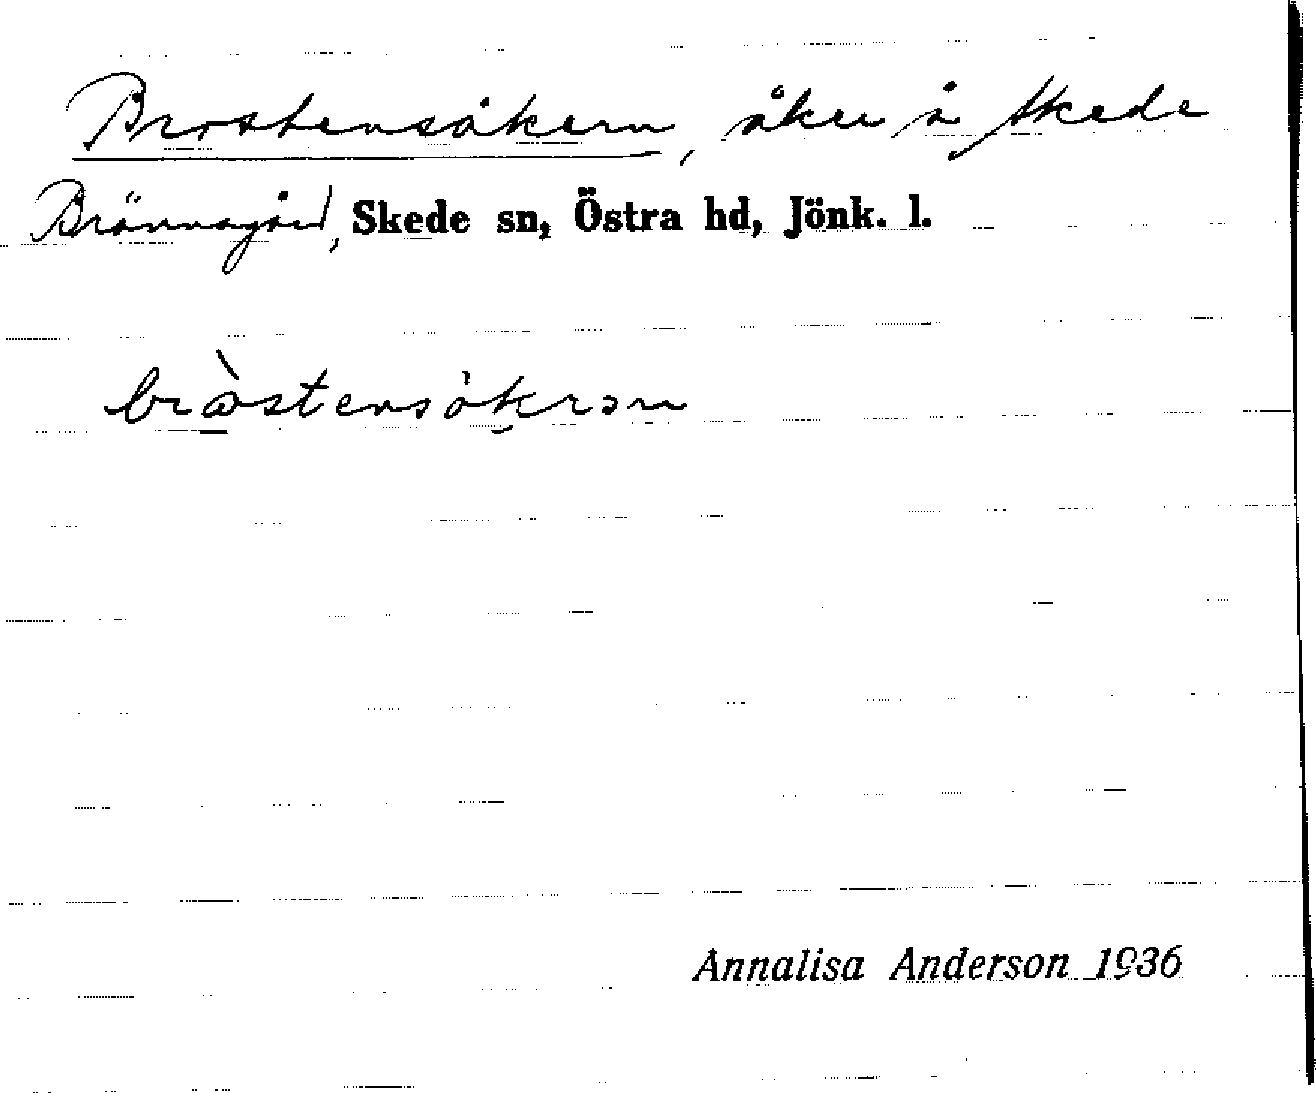 Brostensåkern, åker å Skede
Brännagård, Skede sn, Östra hd, Jönk. l.
bròstensåkrən
Annalisa Anderson 1936